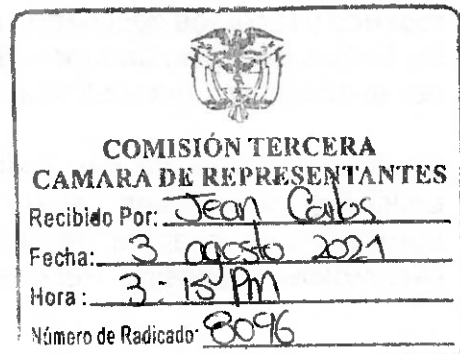 COMISIÓN TERCERA
CAMARA DE REPRESENTANTES
Recibido Por: Jean Carlos
Fecha: 3 agosto 2021
Hora: 3:15 PM
Número de Radicado: 8096